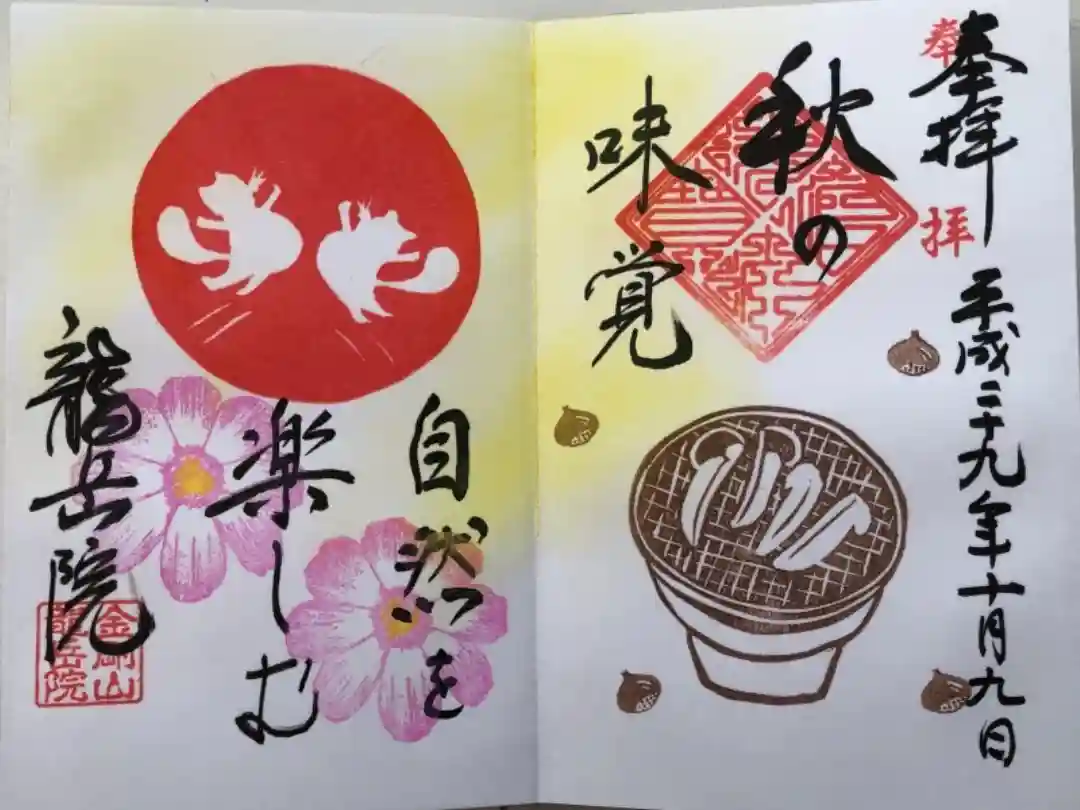 奉拝
奉拝
平成二十九年十月九日
秋の
味覚
自然を
楽しむ
龍岳院
金剛山
龍岳院